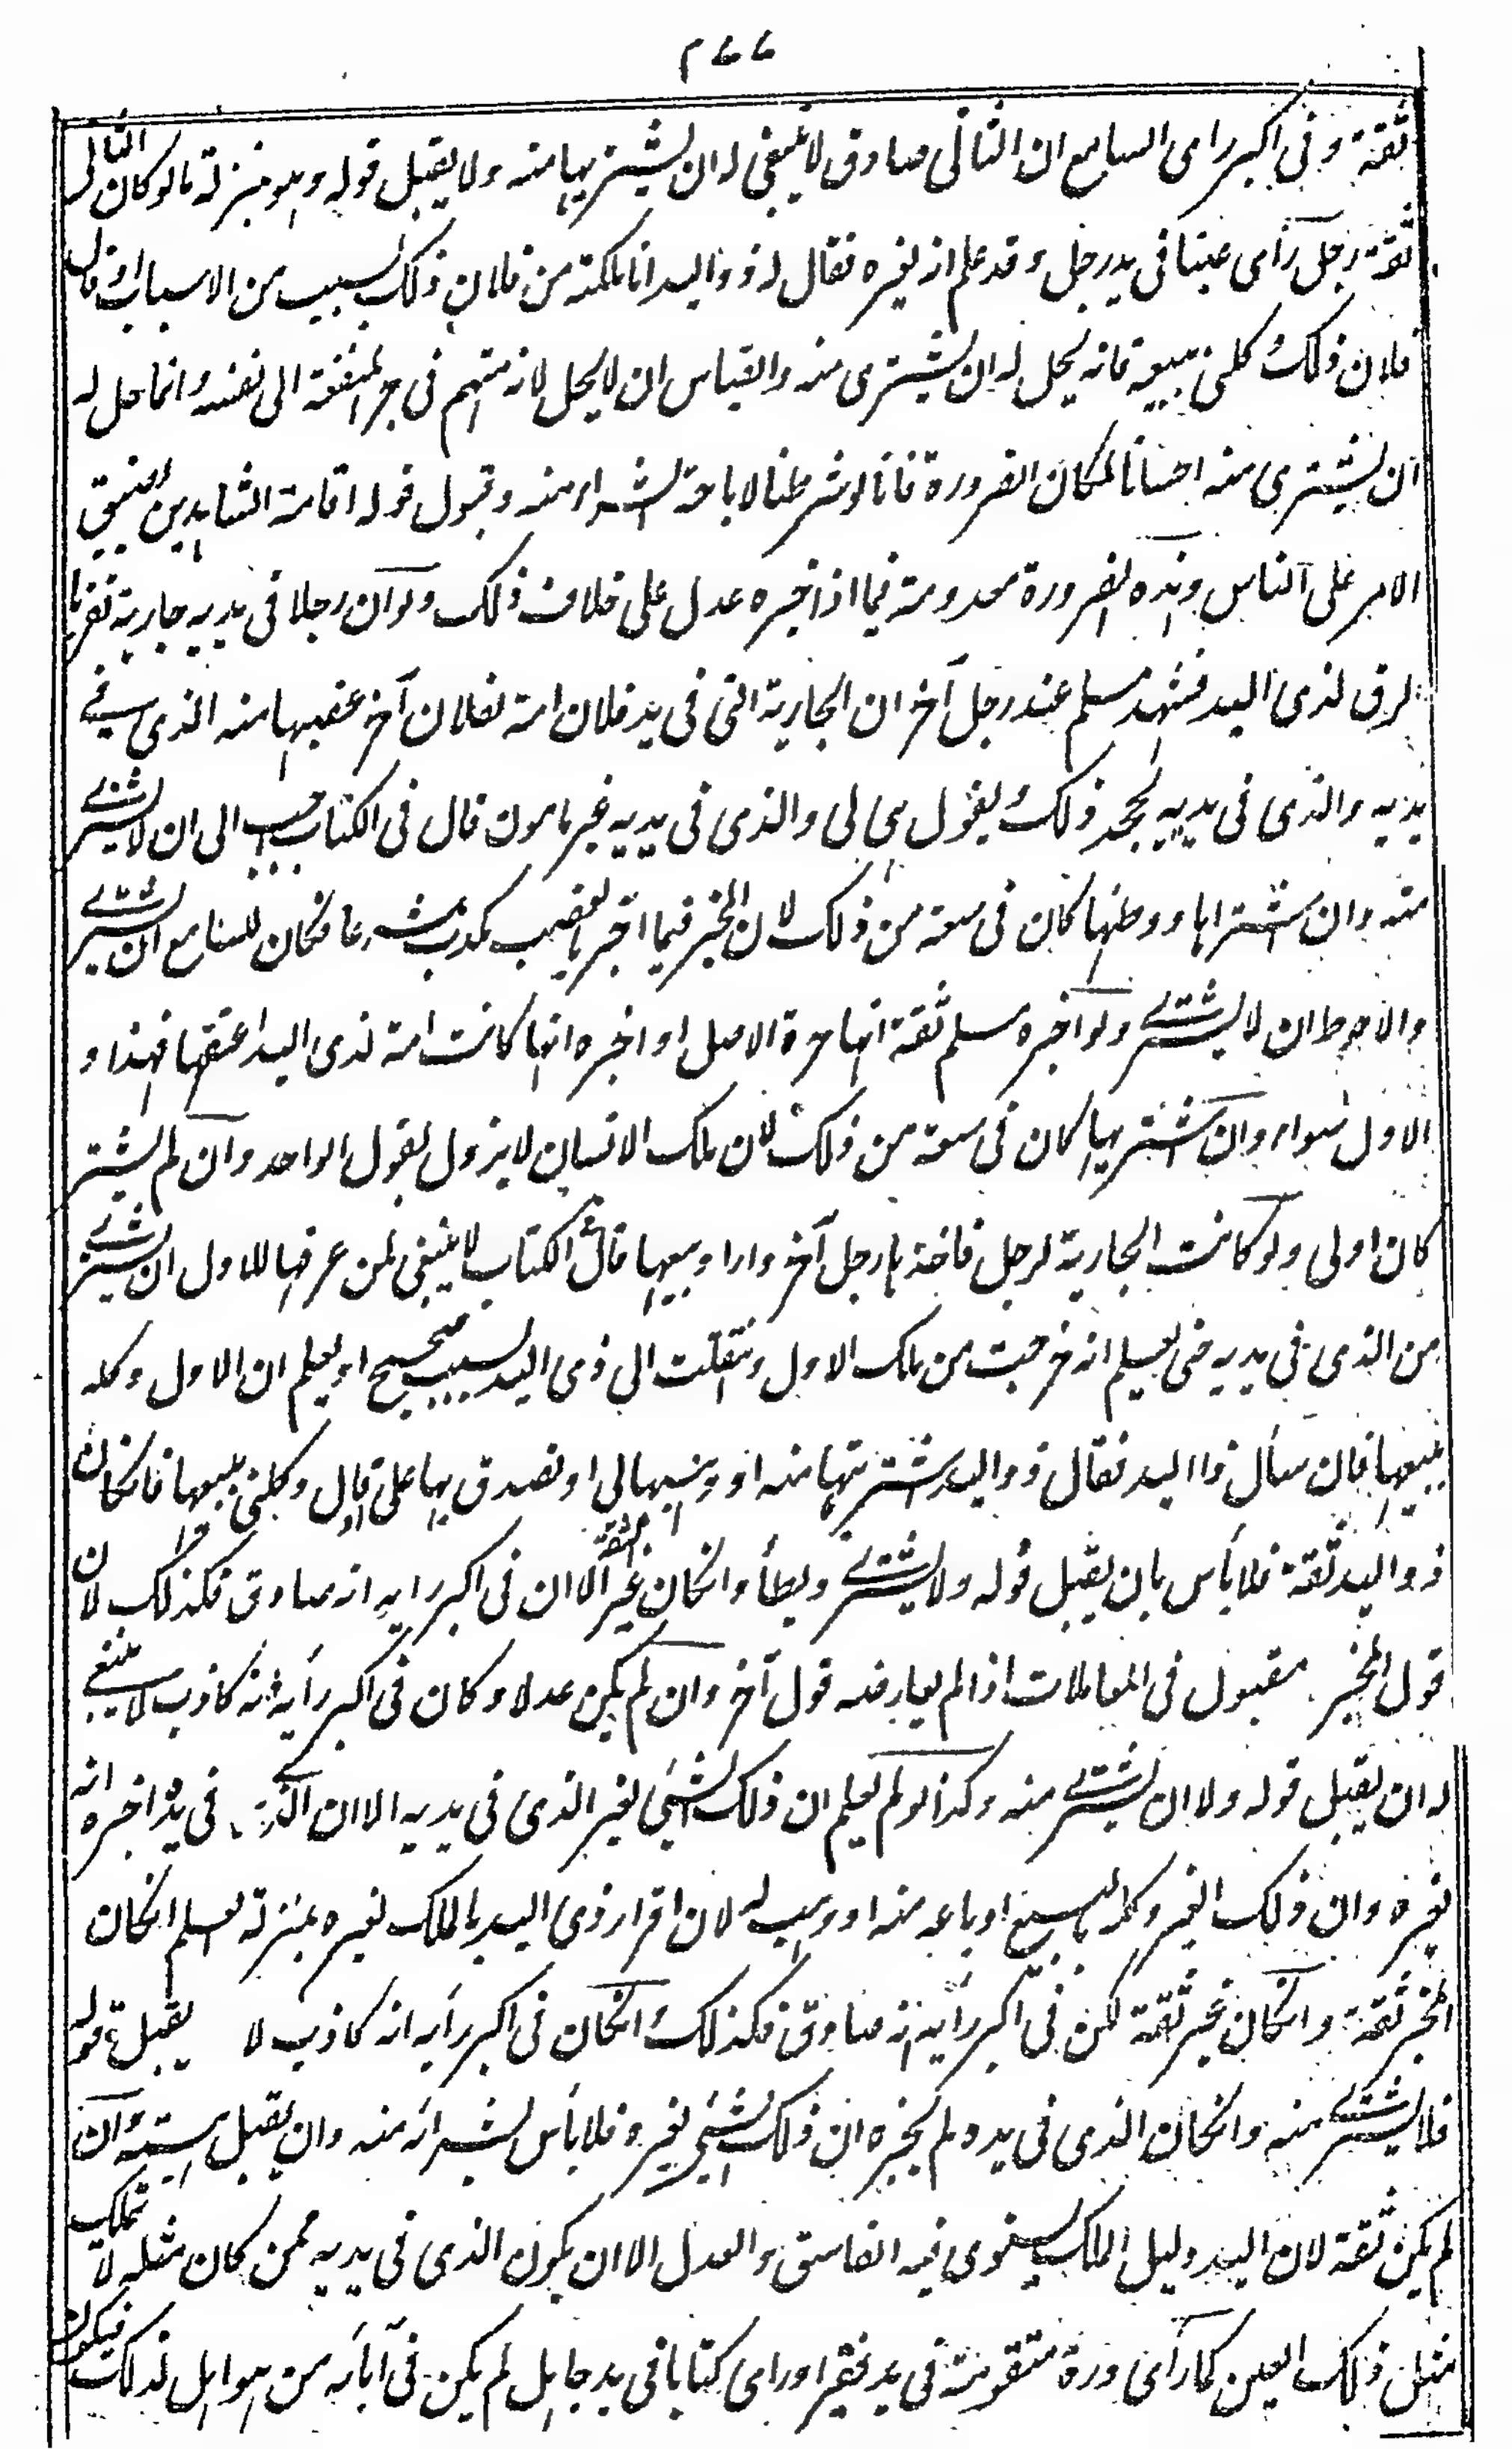 ٤٧٧
ثقة وفى اكبر راى السامع ان الثانى صادق لا ينبغى له ان يشتريها منه ولا يقبل قوله وهو بمنزلة ما لو كان الثانى
ثقة رجل رأى عينا فى يد رجل وقد علم انه لغيره فقال له ذو اليد انا ملكته من فلان ذلك بسبب من الاسباب او قال
فلان ذلك وكلنى ببيعه فانه يحل له ان يشترى منه والقياس ان لا يحل لانه متهم فى جر المنفعة الى نفسه وانما حل له
ان يشترى منه احسانا لمكان الضرورة فانا لو شرطنا لاباحة الشراء منه وقبول قوله اقامة الشاهدين لضيق
الامر على الناس وهذه الضرورة معدومة فيما اذا اخبره عدل على خلاف ذلك ولو ان رجلا فى يديه جارية تقر با
لرق لذى اليد فشهد مسلم عند رجل آخر ان الجارية التى فى يد فلان امة لفلان آخر غصبها منه الذى فى
يديه والذى فى يديه يجحد ذلك ويقول هى لى والذى فى يديه غير مامون قال فى الكتاب احب الى ان لا يشترى
منه وان اشتراها ووطئها كان فى سعة من ذلك لان المخبر فيما اخبر بالغصب مكذب شرعا فكان للسامع ان يشترى
والاحوط ان لا يشترى ولو اخبره مسلم ثقة انها حرة الاصل او اخبره انها كانت امة لذى اليد اعتقها فهذا و
الاول سواء وان اشتريها كان فى سعة من ذلك لان ملك الانسان لا يزول بقول الواحد وان لم يشتر
كان اولى ولو كانت الجارية لرجل فاخذها رجل آخر واراد بيعها قال فى الكتاب لا ينبغى لمن عرفها للاول ان يشترى
من الذى فى يديه حتى يعلم انه خرجت من ملك الاول وانتقلت الى ذى اليد بسبب صحيح او يعلم ان الاول وكله
ببيعها فان سأل ذا اليد فقال ذو اليد اشتريتها منه او وهبها لى او تصدق بها على او قال وكلنى ببيعها فانكان
ذو اليد ثقة فلا بأس بان يقبل قوله ولا يشترى ويطأ وانكان غير الثقة الا ان فى اكبر رايه انه صادق فكذلك لان
قول المخبر مقبول فى المعاملات اذا لم يعارضه قول آخر وان لم يكن عدلا وكان فى اكبر رأيه انه كاذب لا ينبغى
له ان يقبل قوله ولا ان يشترى منه وكذا لو لم يعلم ان ذلك الشئى لغير الذى فى يديه الا ان الذى فى يده اخبره انه
لغيره وان ذلك الغير وكله بالبيع او باعه منه او وهب له لان اقرار ذى اليد بالملك لغيره بمنزلة لعلم انكان
المخبر ثقة وانكان غير ثقة لكن فى اكبر رأيه انه صادق فكذلك وانكان فى اكبر رأيه انه كاذب لا يقبل قوله
فلا يشترى منه وانكان الذى فى يده لم يخبره ان ذلك الشئى لغيره فلا بأس بشرائه منه وان يقبل هبته وان
لم يكن ثقة لان اليد دليل الملك يستوى فيه الفاسق والعدل الا ان يكون الذى فى يديه ممن كان مثله لا يملك
مثل ذلك العين كما رأى درة متقومة فى يد فقير او راى كتابا فى يد جاهل لم يكن فى آبائه من هو اهل لذلك فيكون